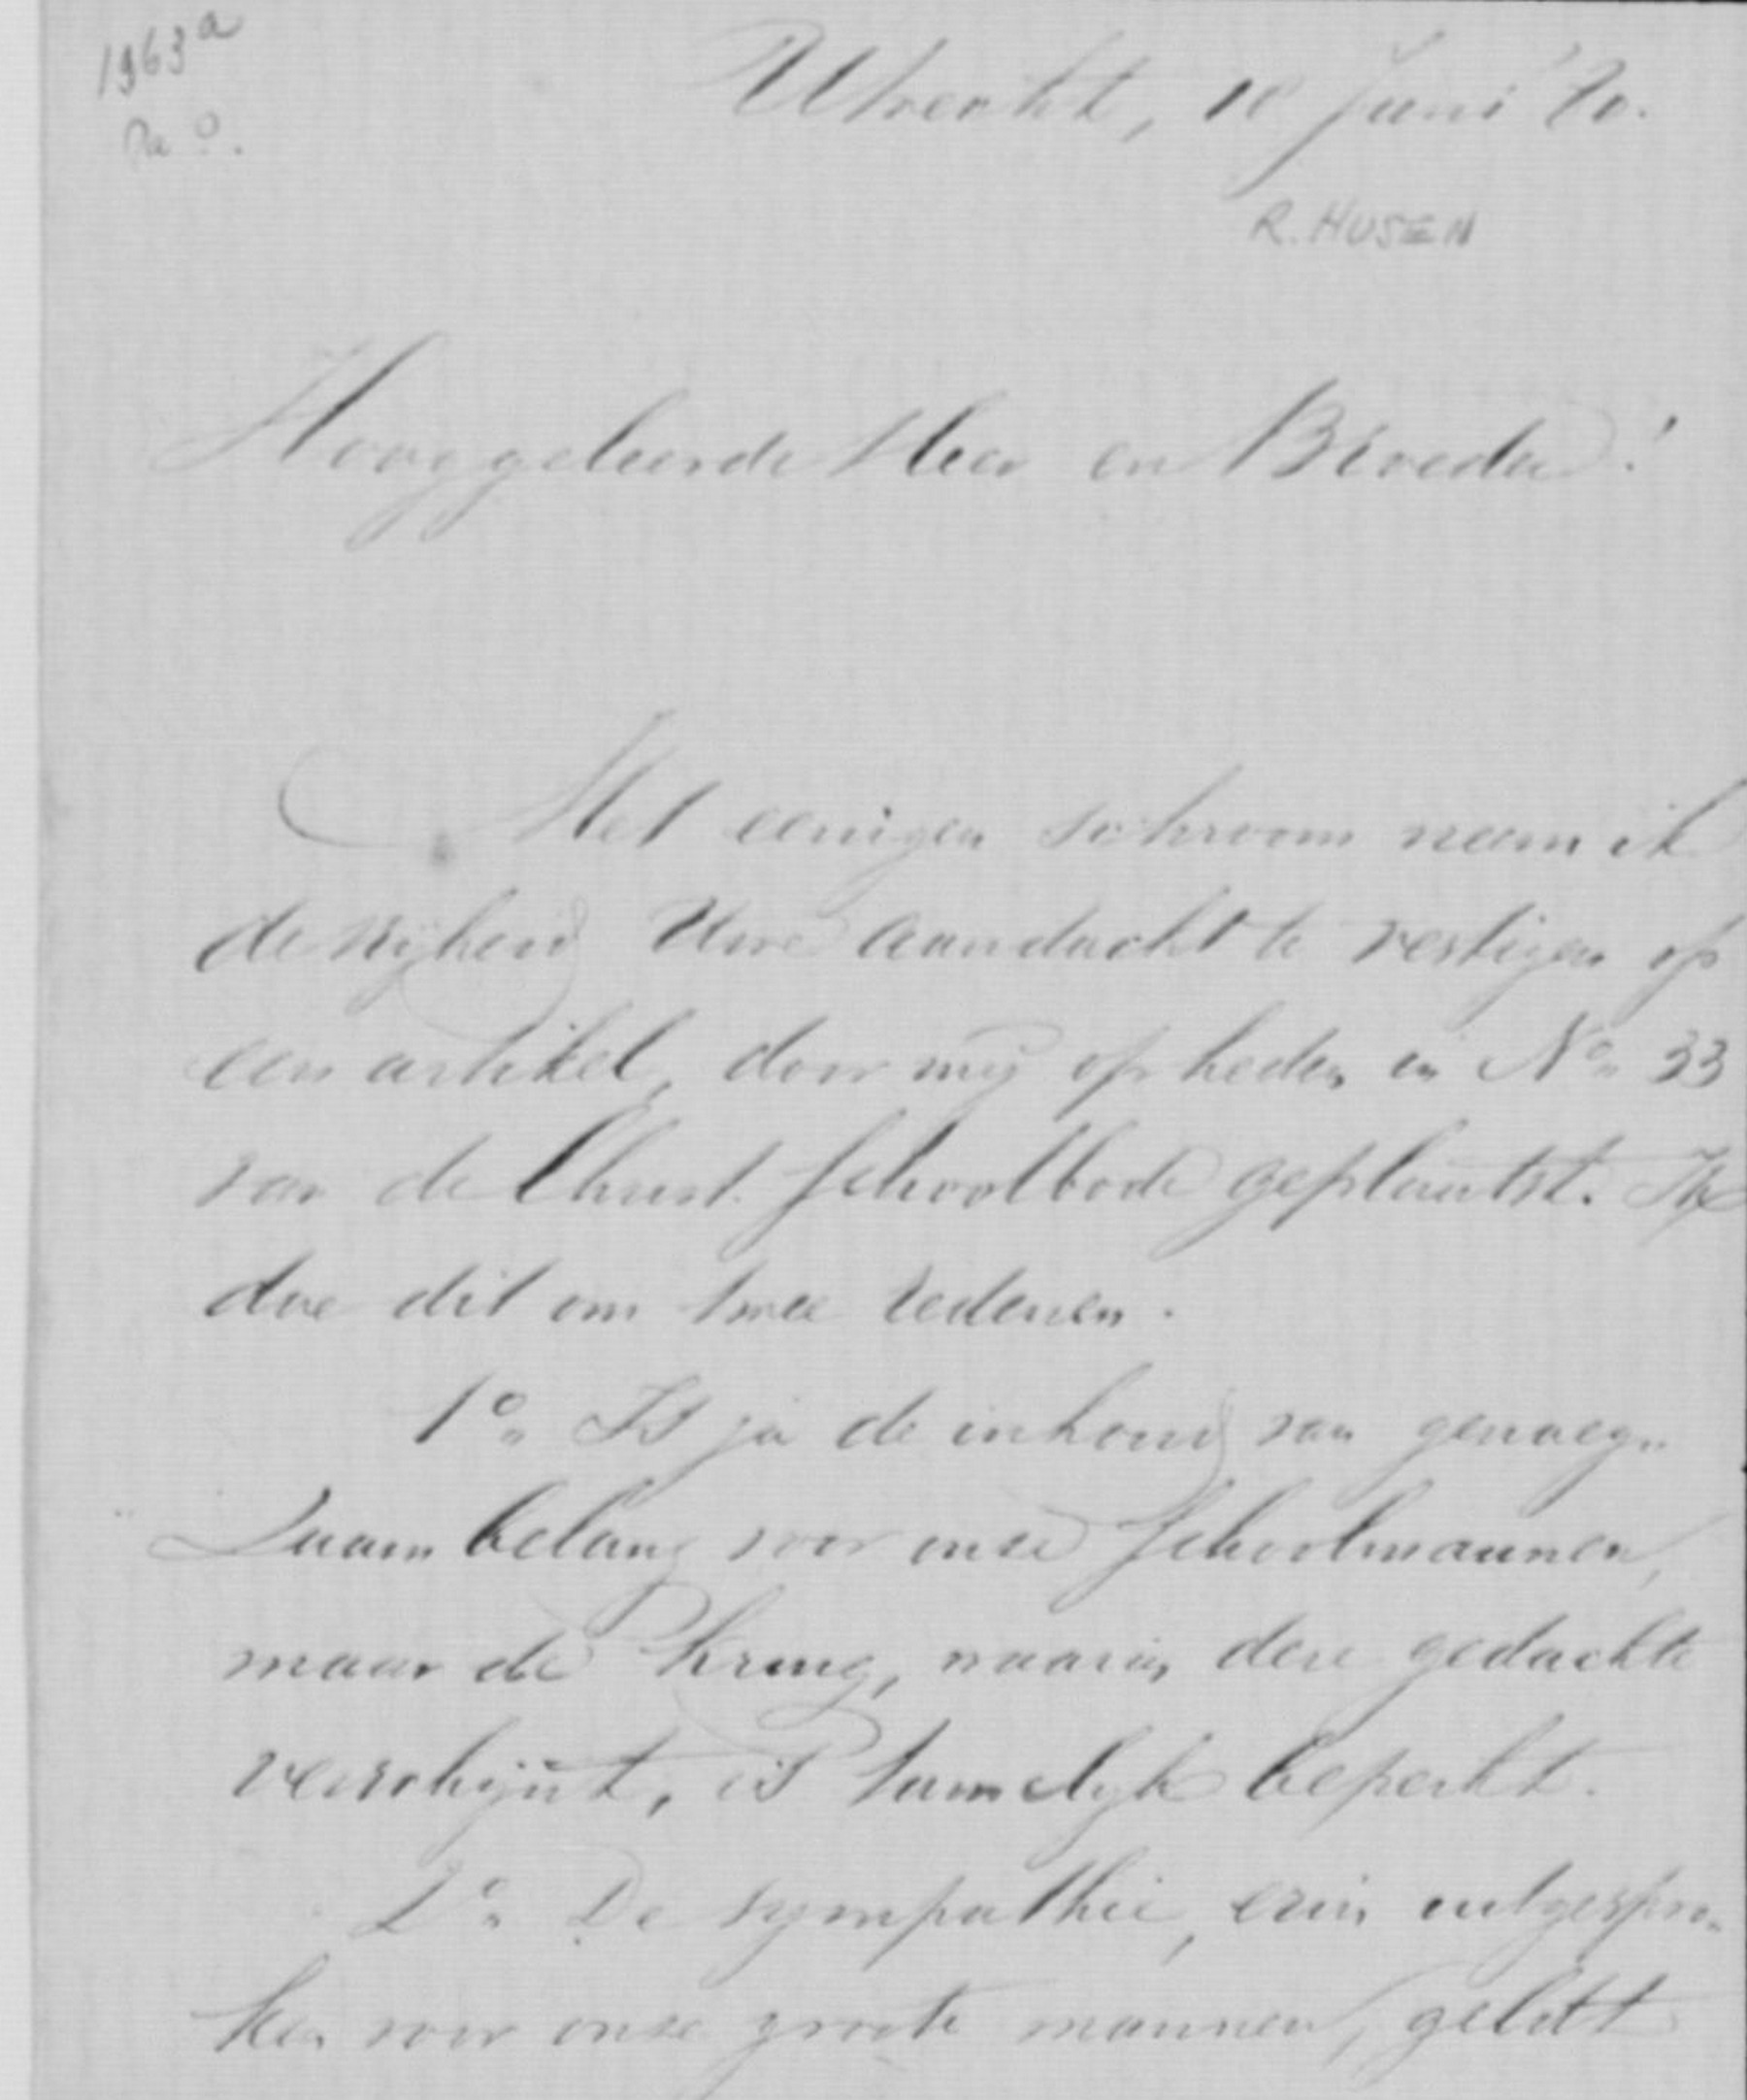 1963a
Utrecht, 10 Juni
R. HUSEN
Hooggeleerde Heer en Broeder!
Met eenigen schroom neem ik
de vrijheid Uwe aandacht te vestigen op
een artikel, door mij op heden in No. 33
van de Christ. Schoolbode geplaatst. Ik
doe dit om twee redenen.
1o. Is ja de inhoud van genoeg-
zaam belang voor onze Schoolmannen,
maar de kring, waarin deze gedachte
verschijnt, is tamelijk beperkt.
2o. De sympathie, erin uitgespro-
ken voor onze groote mannen, geldt